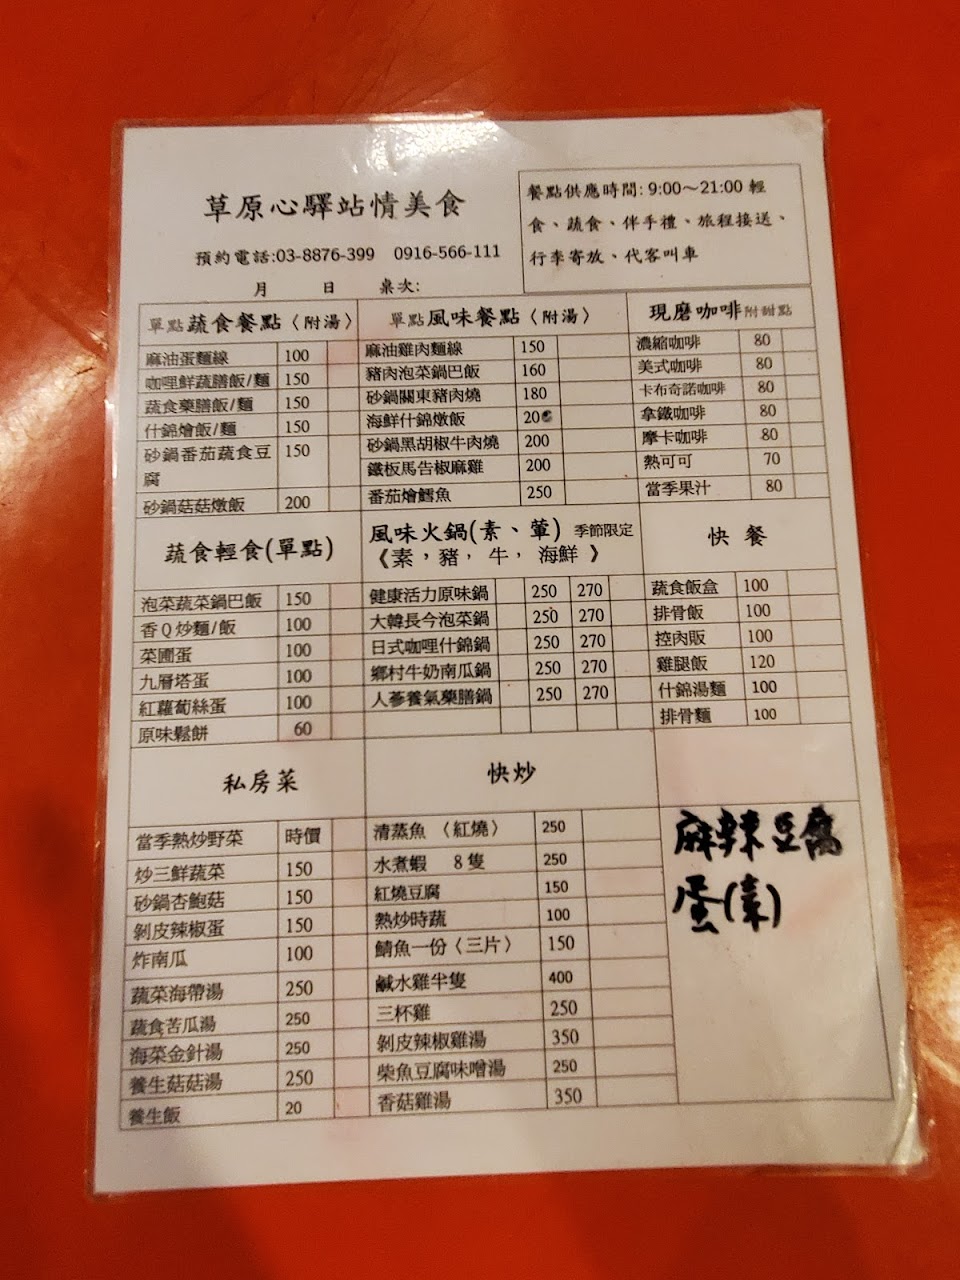 草原心驛站情美食
預約電話:03-8876-399 0916-566-111
月 日 桌次:
餐點供應時間: 9:00～21:00 輕
食、蔬食、伴手禮、旅程接送、
行李寄放、代客叫車
單點 蔬食餐點〈附湯〉
麻油蛋麵線 100
咖哩鮮蔬膳飯/麵 150
蔬食藥膳飯/麵 150
什錦燴飯/麵 150
砂鍋番茄蔬食豆 150
腐
砂鍋菇菇燉飯 200
單點 風味餐點〈附湯〉
麻油雞肉麵線 150
豬肉泡菜鍋巴飯 160
砂鍋關東豬肉燒 180
海鮮什錦燉飯 200
砂鍋黑胡椒牛肉燒 200
鐵板馬告椒麻雞 200
番茄燴鱈魚 250
現磨咖啡 附甜點
濃縮咖啡 80
美式咖啡 80
卡布奇諾咖啡 80
拿鐵咖啡 80
摩卡咖啡 80
熱可可 70
當季果汁 80
蔬食輕食(單點)
泡菜蔬菜鍋巴飯 150
香Q炒麵/飯 100
菜圃蛋 100
九層塔蛋 100
紅蘿蔔絲蛋 100
原味鬆餅 60
風味火鍋(素、葷) 季節限定
《素，豬， 牛， 海鮮 》
健康活力原味鍋 250 270
大韓長今泡菜鍋 250 270
日式咖哩什錦鍋 250 270
鄉村牛奶南瓜鍋 250 270
人蔘養氣藥膳鍋 250 270
快餐
蔬食飯盒 100
排骨飯 100
控肉販 100
雞腿飯 120
什錦湯麵 100
排骨麵 100
私房菜
當季熱炒野菜 時價
炒三鮮蔬菜 150
砂鍋杏鮑菇 150
剝皮辣椒蛋 150
炸南瓜 100
蔬菜海帶湯 250
蔬食苦瓜湯 250
海菜金針湯 250
養生菇菇湯 250
養生飯 20
快炒
清蒸魚 〈紅燒〉 250
水煮蝦 8隻 250
紅燒豆腐 150
熱炒時蔬 100
鯖魚一份〈三片〉 150
鹹水雞半隻 400
三杯雞 250
剝皮辣椒雞湯 350
柴魚豆腐味噌湯 250
香菇雞湯 350
麻辣豆腐
蛋(素)